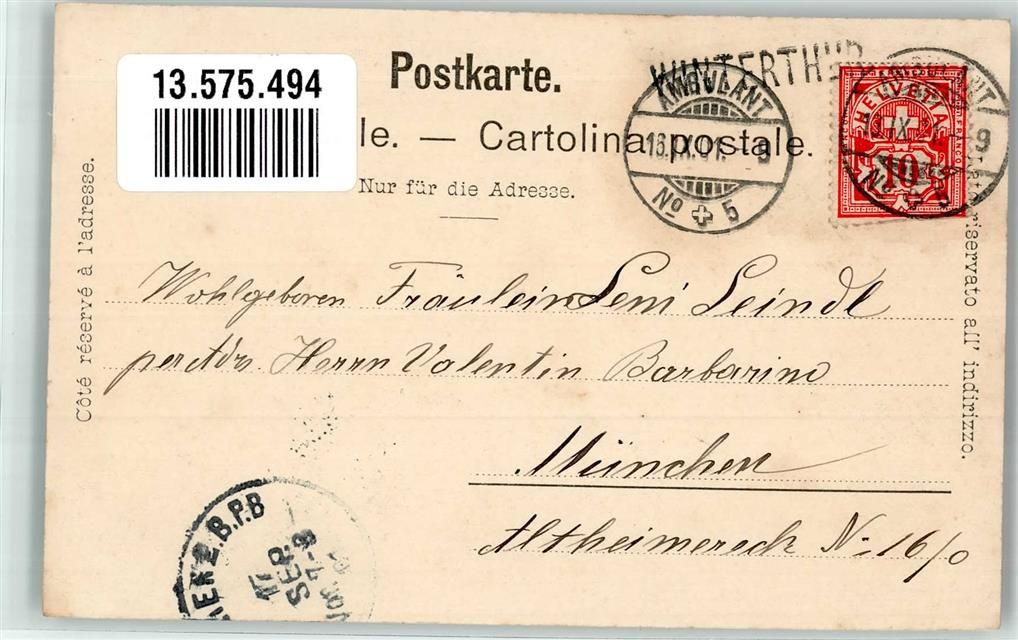 13.575.494
Postkarte.
WINTERTHUR
le. — Cartolina postale.
Nur für die Adresse.
AMBULANT
16.IX.01. 9
No 5
HELVETIA
10
IX
9
No 5
Côté réservé à l'adresse.
riservato all' indirizzo.
Wohlgeboren Fräulein Leni Leindl
per Adr. Herrn Valentin Barbarino
München
Altheimereck No 16/0
2.B.P.B
17
SEP.
7-8